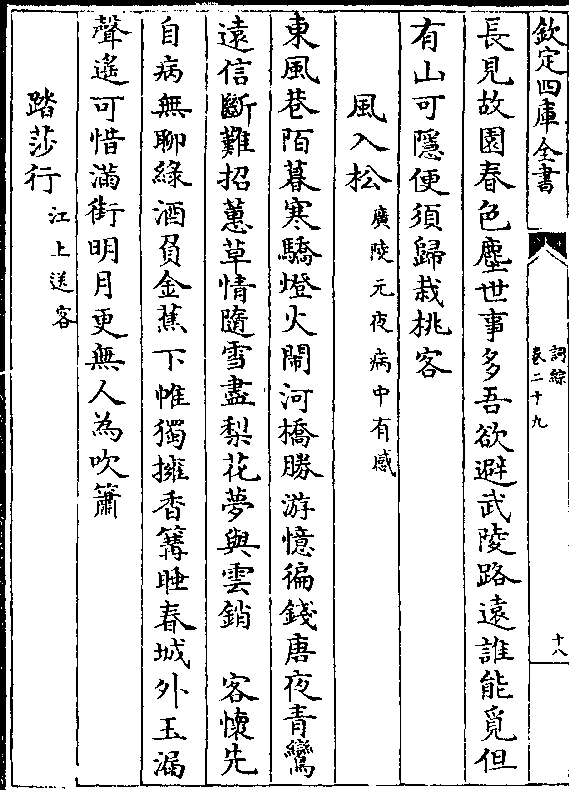 欽定四庫全書
詞綜
卷二十九
十八
長見故園春色塵世事多吾欲避武陵路遠誰能覓但
有山可隱便須歸栽桃客
風入松廣陵元夜病中有感
東風巷陌暮寒驕燈火鬧河橋勝游憶徧錢唐夜青鸞
遠信斷難招蕙草情隨雪盡梨花夢與雲銷　客懷先
自病無聊綠酒負金蕉下帷獨擁香篝睡春城外玉漏
聲遙可惜滿街明月更無人為吹簫
踏莎行江上送客